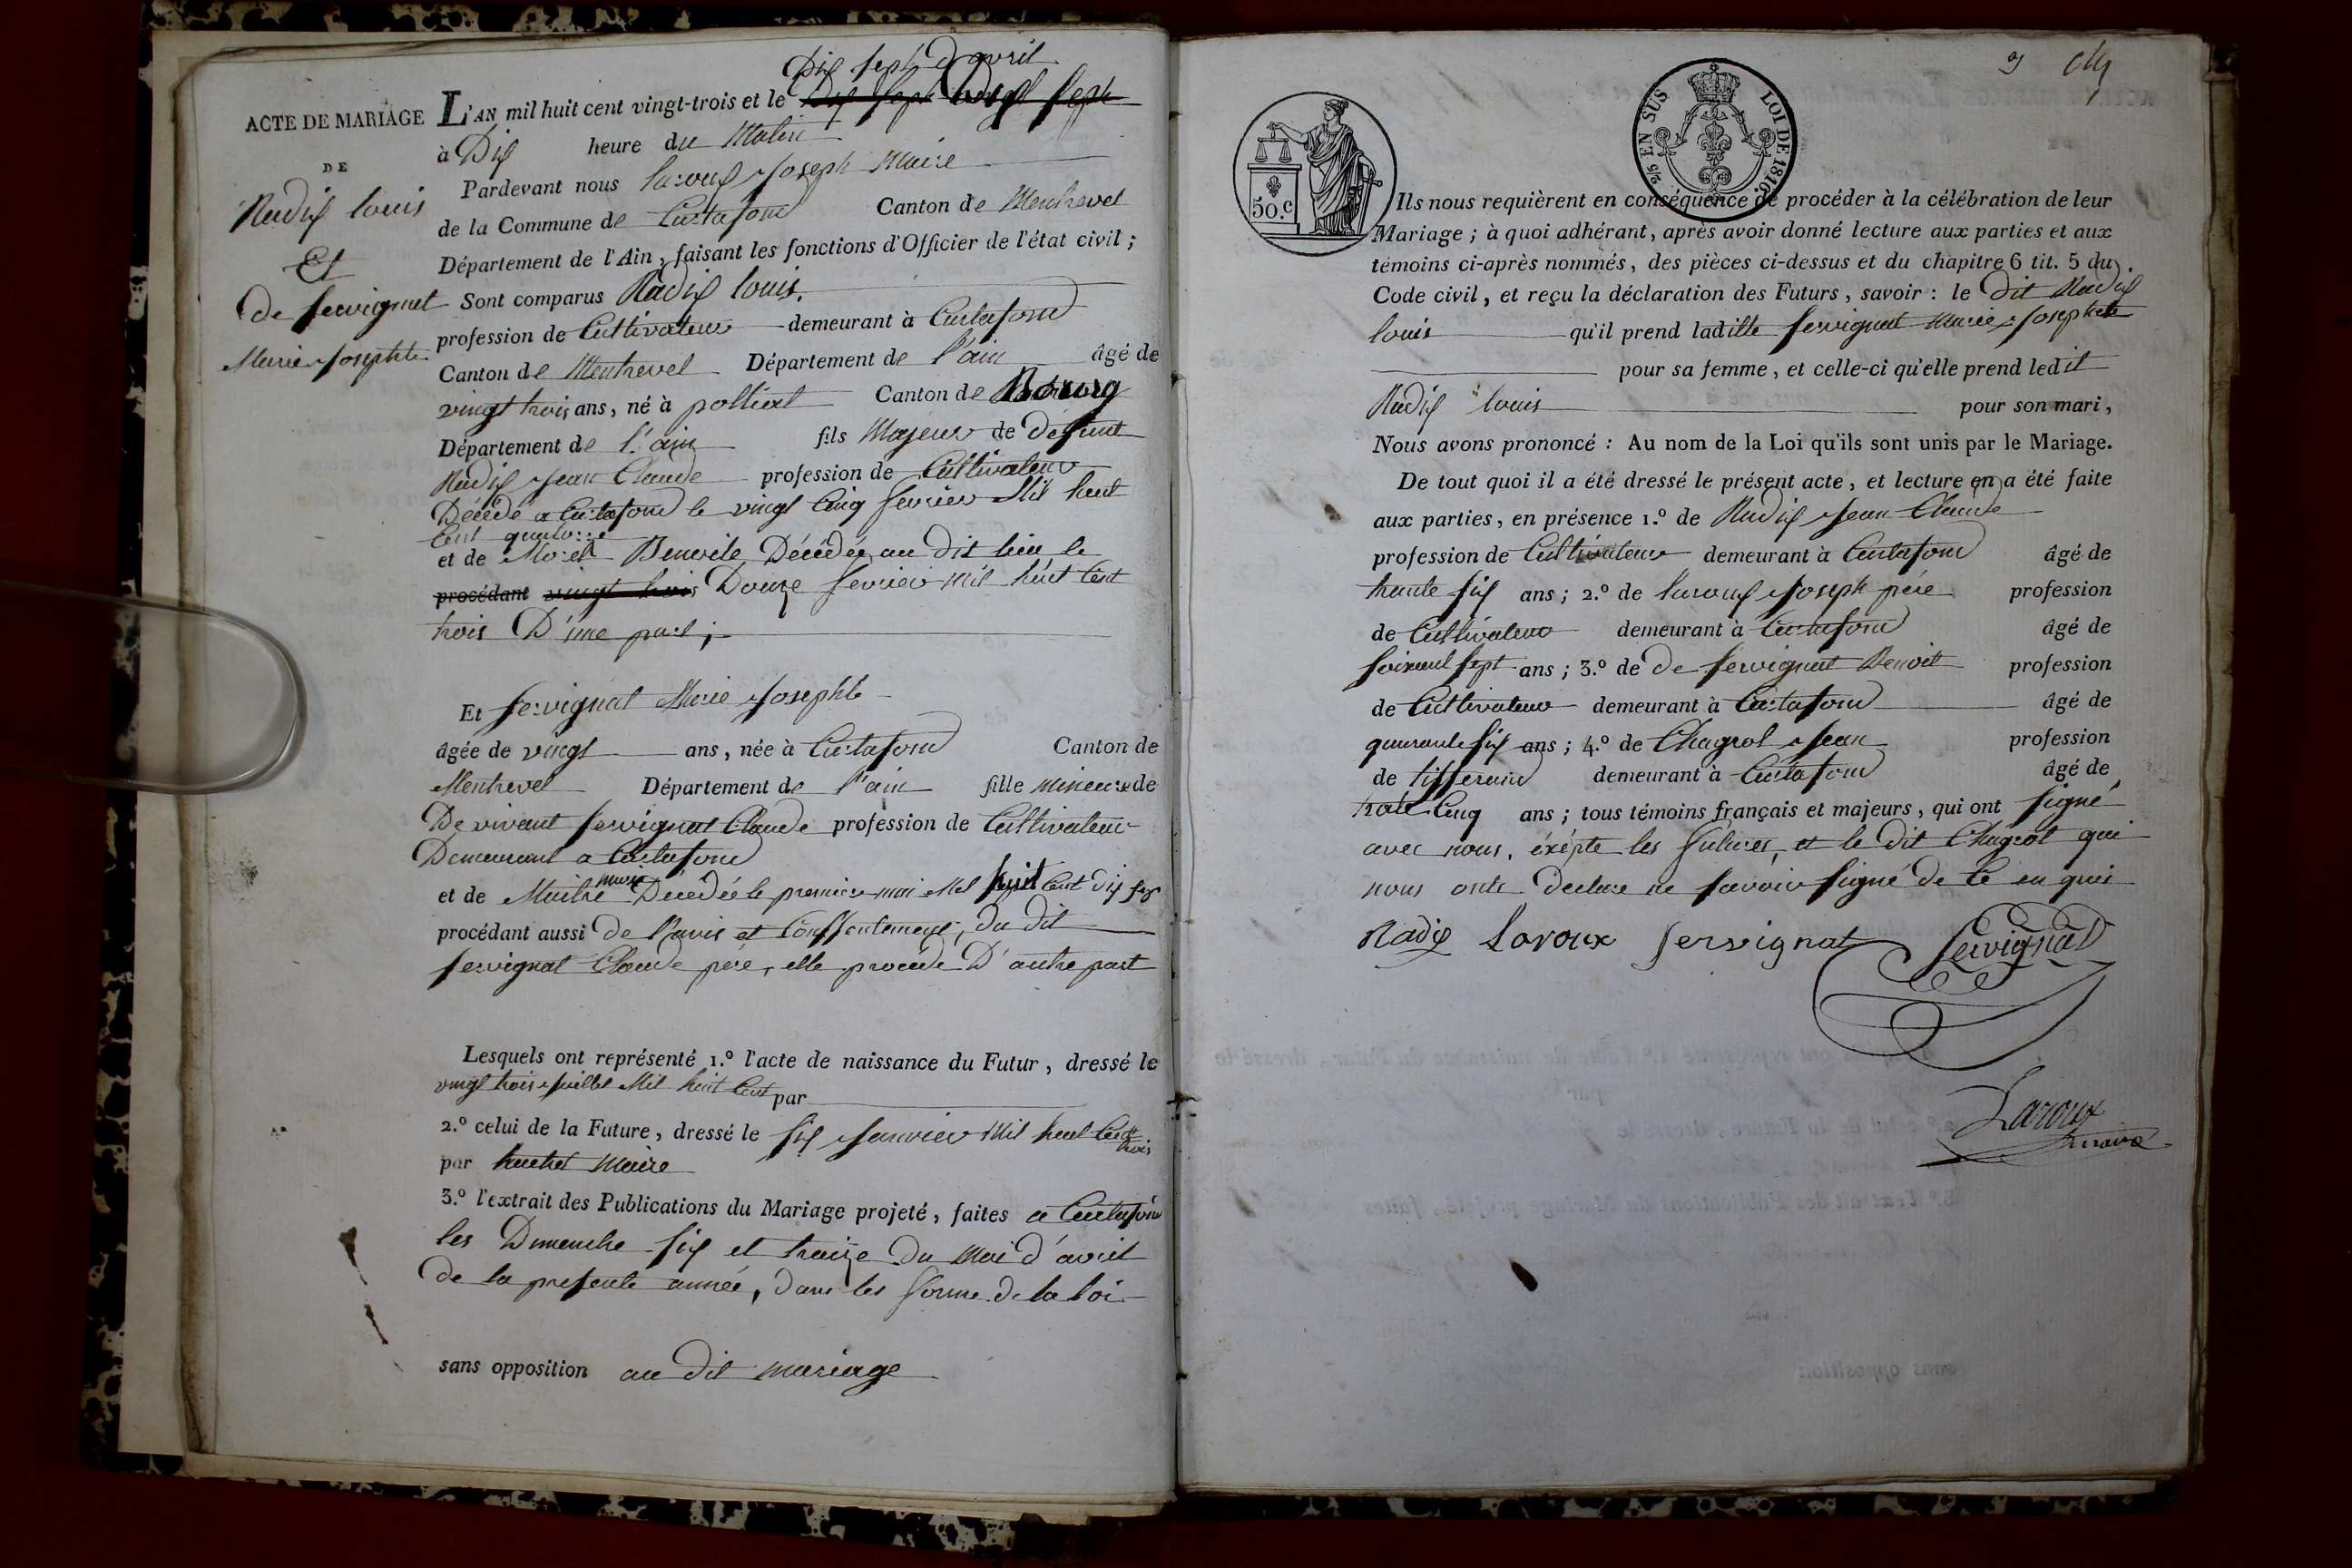 Dix sept d'avril
ACTE DE MARIAGE
DE
Radix louis
Et
de servignat
Marie Josephte
L'AN mil huit cent vingt-trois et le Dix sept vingt sept
à Dix heure du Matin
Pardevant nous laroux Joseph Maire
de la Commune de Curtafond Canton de Montrevel
Département de l'Ain, faisant les fonctions d'Officier de l'état civil ;
Sont comparus Radix louis,
profession de Cultivateur demeurant à Curtafond
Canton de Montrevel Département de l'ain âgé de
vingt trois ans, né à polliat Canton de Bourg
Département de l'ain fils Majeur de défunt
Radix Jean Claude profession de Cultivateur
Décédé a Curtafond le vingt Cinq fevrier Mil huit
Cent quatorze
et de Morel Benoite Décédée au dit lieu le
procédant vingt trois Douze fevrier mil huit Cent
trois D'une part ;
Et servignat Marie Josephte
âgée de vingt ans, née à Curtafond Canton de
Montrevel Département de l'ain fille mineure de
De vivant servignat Claude profession de Cultivateur
Demeurant a Curtafond
et de Maitre marie Décédée le premier mai Mil huit Cent dix sep
procédant aussi de l'avis et Conssentement, du dit
servignat Claude père, elle procède D'autre part
Lesquels ont représenté 1.º l'acte de naissance du Futur, dressé le
vingt trois Juillet Mil huit Cent par
2.º celui de la Future, dressé le six Janvier Mil huit Cent
trois
par Maire
3.º l'extrait des Publications du Mariage projeté, faites a Curtafond
les Dimenche six et traize du Moi d'avril
de la presente année, dans les forme de la loi
sans opposition au dit mariage
50.C
25 EN SUS LOI DE 1816.
Ils nous requièrent en conséquence de procéder à la célébration de leur
Mariage ; à quoi adhérant, après avoir donné lecture aux parties et aux
témoins ci-après nommés, des pièces ci-dessus et du chapitre 6 tit. 5 du
Code civil, et reçu la déclaration des Futurs, savoir : le dit Radix
louis qu'il prend ladille servignat Marie Josephete
pour sa femme, et celle-ci qu'elle prend ledit
Radix louis pour son mari,
Nous avons prononcé : Au nom de la Loi qu'ils sont unis par le Mariage.
De tout quoi il a été dressé le présent acte, et lecture en a été faite
aux parties, en présence 1.º de Radix Jean Claude
profession de Cultivateur demeurant à Curtafond âgé de
trante six ans ; 2.º de laroux Joseph père profession
de Cultivateur demeurant à Curtafond âgé de
soixant sept ans ; 3.º de De servignat Benoit profession
de Cultivateur demeurant à Curtafond âgé de
quarante six ans ; 4.º de Chagrot Jean profession
de tisserand demeurant à Curtafond âgé de
Cinq ans ; tous témoins français et majeurs, qui ont signé
avec nous, éxépte les futures, et le dit Chagrot qui
nous onts declare ne savoir signé de Ce en quis
Radix Laroux servignat servignat
Laroux
maire